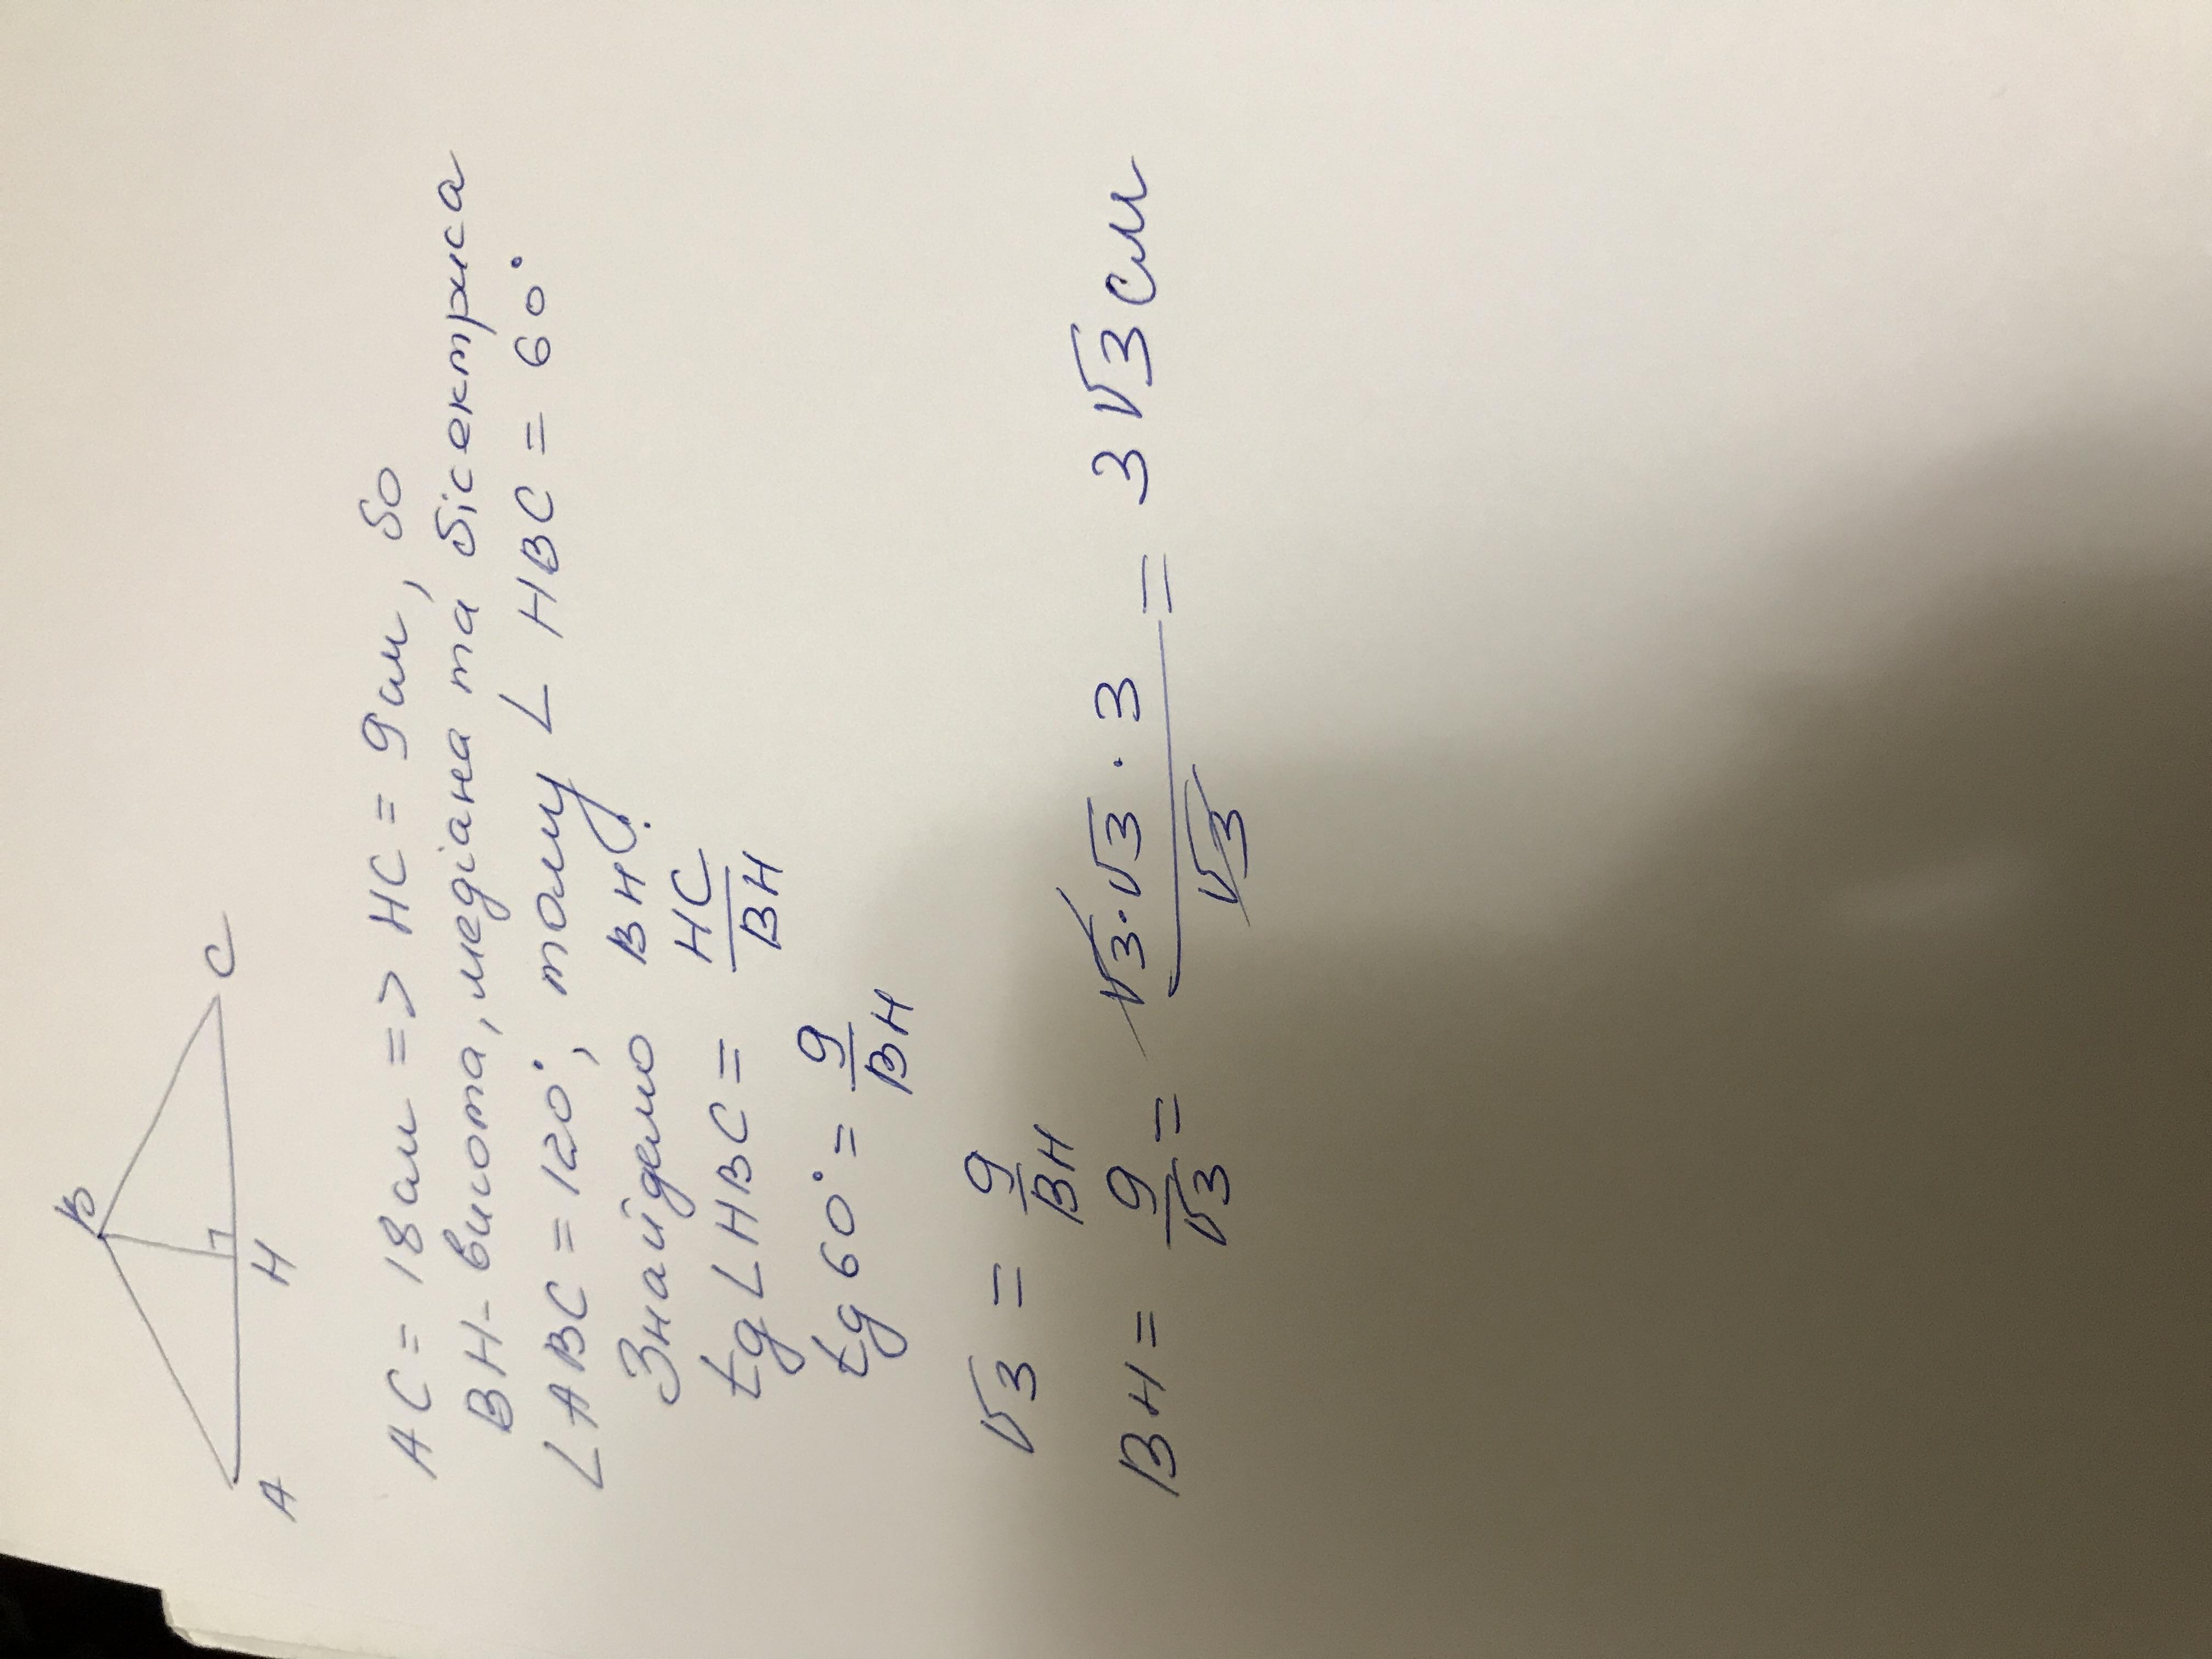 B
A
H
C
AC = 18 см => HC = 9 см, бо
BH - висота, медіана та бісектриса
∠ABC = 120°, тому ∠ HBC = 60°
Знайдемо BH.
tg∠HBC = HC/BH
tg60° = 9/BH
√3 = 9/BH
BH = 9/√3 = √3·√3·3/√3 = 3√3 см